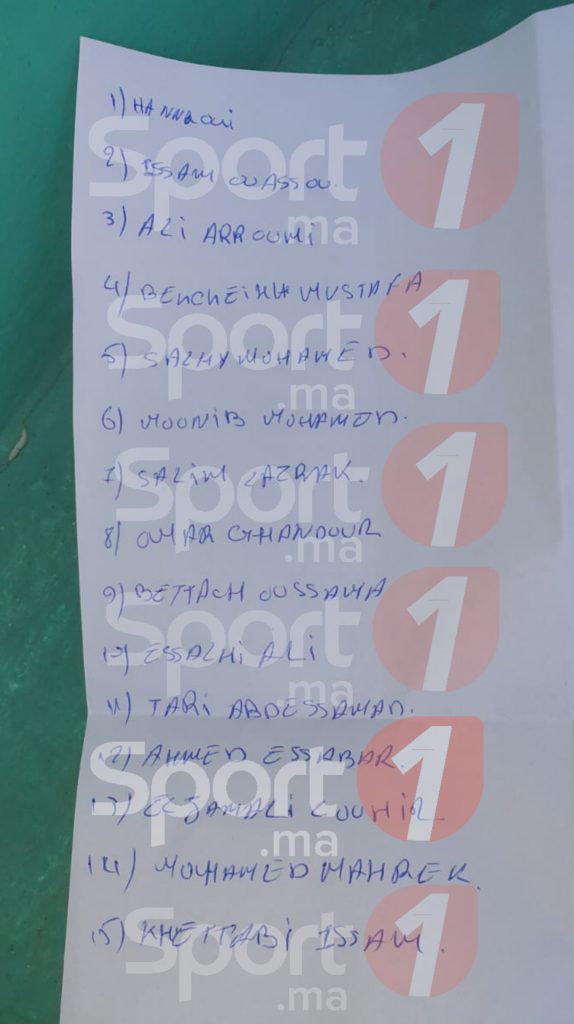 1) HANNAOUI
2) ISSAM OUASSOU.
3) ALI ARROUMI
4) BENCHEIKH MUSTAFA
5) SALHY MOHAMED.
6) MOUNIB MOHAMED.
7) SALIM LAZRAK.
8) OMAR GHANDOUR
9) BETTACH OUSSAMA
10) ESSALHI ALI
11) TARI ABDESSAMAD.
12) AHMED ESSABAR.
13) ELJAMALI
14) MOHAMED MAHREK.
15) KHETTABI ISSAM.
Sport 1 .ma
Sport 1 .ma
Sport 1 .ma
Sport 1 .ma
Sport 1 .ma
Sport 1 .ma